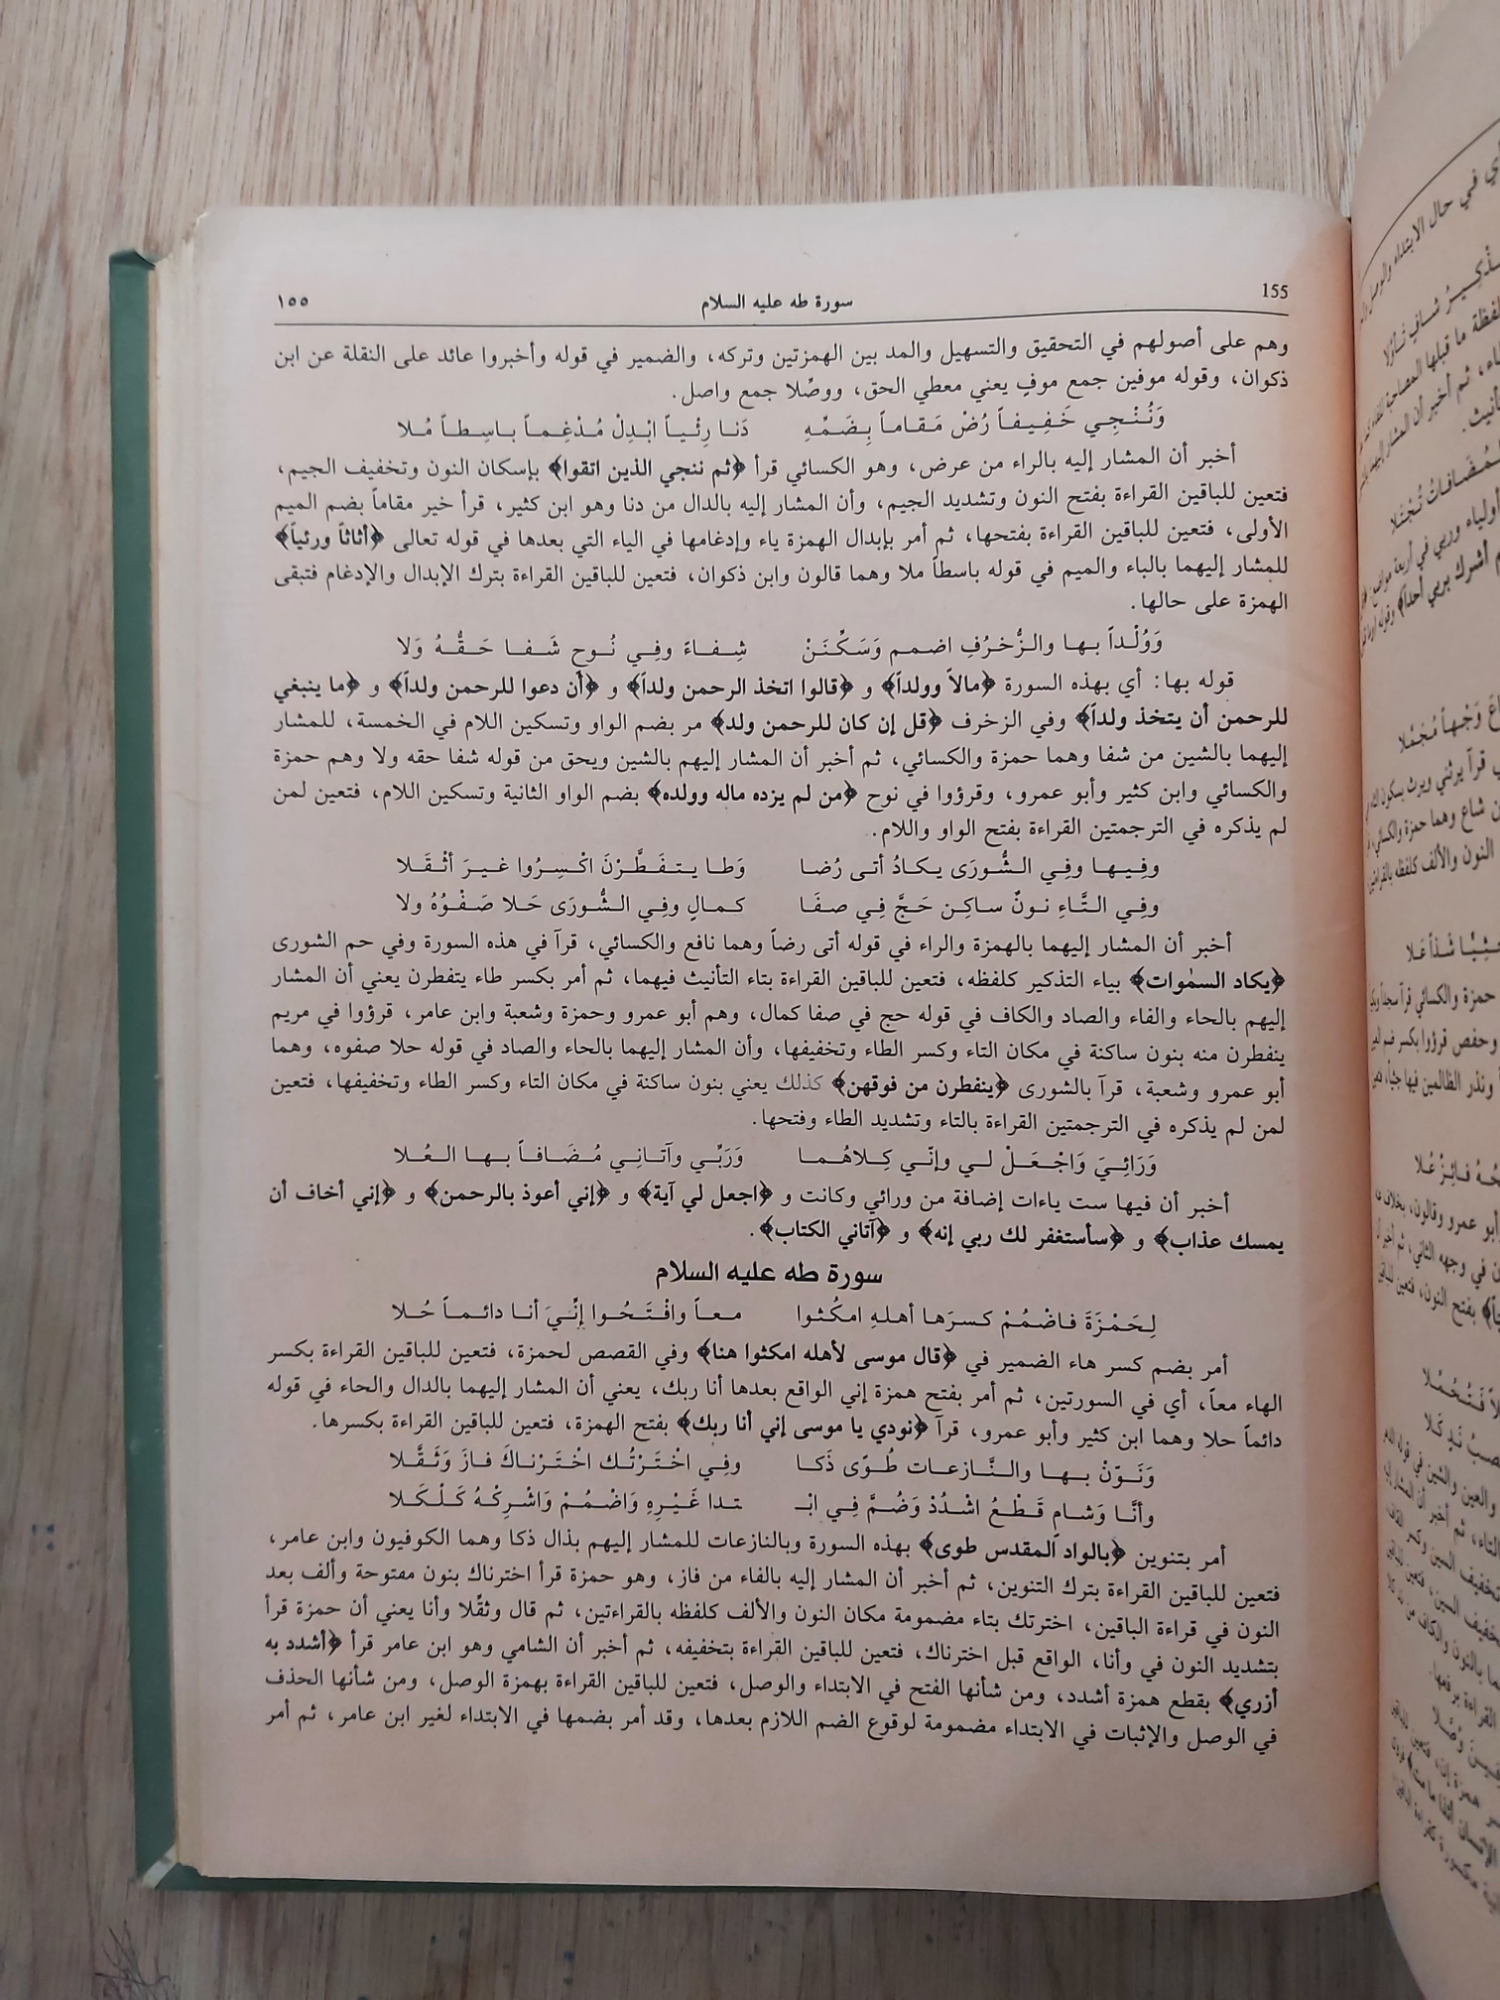 155
سورة طه عليه السلام
١٥٥
وهم على أصولهم في التحقيق والتسهيل والمد بين الهمزتين وتركه، والضمير في قوله وأخبروا عائد على النقلة عن ابن
ذكوان، وقوله موفين جمع موفٍ يعني معطي الحق، ووصِّلا جمع واصل.
وَنُنْجِي خَفِيفاً رُضْ مَقاماً بِضَمِّهِ دَنا رِئْياً ابْدِلْ مُدْغِماً باسِطاً مُلا
أخبر أن المشار إليه بالراء من عرض، وهو الكسائي قرأ ﴿ثم ننجي الذين اتقوا﴾ بإسكان النون وتخفيف الجيم،
فتعين للباقين القراءة بفتح النون وتشديد الجيم، وأن المشار إليه بالدال من دنا وهو ابن كثير، قرأ خير مقاماً بضم الميم
الأولى، فتعين للباقين القراءة بفتحها، ثم أمر بإبدال الهمزة ياء وإدغامها في الياء التي بعدها في قوله تعالى ﴿أثاثاً ورئياً﴾
للمشار إليهما بالباء والميم في قوله باسطاً ملا وهما قالون وابن ذكوان، فتعين للباقين القراءة بترك الإبدال والإدغام فتبقى
الهمزة على حالها.
وَوُلْداً بها والزُّخرُفِ اضمم وَسَكِّنَنْ شِفاءً وفِي نُوحٍ شَفا حَقُّهُ وَلا
قوله بها: أي بهذه السورة ﴿مالاً وولداً﴾ و ﴿قالوا اتخذ الرحمن ولداً﴾ و ﴿أن دعوا للرحمن ولداً﴾ و ﴿ما ينبغي
للرحمن أن يتخذ ولداً﴾ وفي الزخرف ﴿قل إن كان للرحمن ولد﴾ مر بضم الواو وتسكين اللام في الخمسة، للمشار
إليهما بالشين من شفا وهما حمزة والكسائي، ثم أخبر أن المشار إليهم بالشين وبحق من قوله شفا حقه ولا وهم حمزة
والكسائي وابن كثير وأبو عمرو، وقرؤوا في نوح ﴿من لم يزده ماله وولده﴾ بضم الواو الثانية وتسكين اللام، فتعين لمن
لم يذكره في الترجمتين القراءة بفتح الواو واللام.
وفِيها وفِي الشُّورَى يكادُ أتى رُضا وَطا يتفَطَّرْنَ اكْسِرُوا غيرَ أثْقَلا
وفِي التَّاءِ نونٌ ساكِن حَجَّ فِي صفَا كمالٍ وفِي الشُّورَى حَلا صَفْوُهُ ولا
أخبر أن المشار إليهما بالهمزة والراء في قوله أتى رضاً وهما نافع والكسائي، قرآ في هذه السورة وفي حم الشورى
﴿يكاد السمٰوات﴾ بياء التذكير كلفظه، فتعين للباقين القراءة بتاء التأنيث فيهما، ثم أمر بكسر طاء يتفطرن يعني أن المشار
إليهم بالحاء والفاء والصاد والكاف في قوله حج في صفا كمال، وهم أبو عمرو وحمزة وشعبة وابن عامر، قرؤوا في مريم
ينفطرن منه بنون ساكنة في مكان التاء وكسر الطاء وتخفيفها، وأن المشار إليهما بالحاء والصاد في قوله حلا صفوه، وهما
أبو عمرو وشعبة، قرآ بالشورى ﴿ينفطرن من فوقهن﴾ كذلك يعني بنون ساكنة في مكان التاء وكسر الطاء وتخفيفها، فتعين
لمن لم يذكره في الترجمتين القراءة بالتاء وتشديد الطاء وفتحها.
وَرَائِيَ وَاجْعَلْ لي وإنّي كِلاهُما وَرَبِّي وآتانِي مُضَافاً بها العُلا
أخبر أن فيها ست ياءات إضافة من ورائي وكانت و ﴿اجعل لي آية﴾ و ﴿إني أعوذ بالرحمن﴾ و ﴿إني أخاف أن
يمسك عذاب﴾ و ﴿سأستغفر لك ربي إنه﴾ و ﴿آتاني الكتاب﴾.
سورة طه عليه السلام
لِحَمْزَةَ فاضْمُمْ كسرَها أهلهِ امكُثوا معاً وافْتَحُوا إنِّيَ أنا دائماً حُلا
أمر بضم كسر هاء الضمير في ﴿قال موسى لأهله امكثوا هنا﴾ وفي القصص لحمزة، فتعين للباقين القراءة بكسر
الهاء معاً، أي في السورتين، ثم أمر بفتح همزة إني الواقع بعدها أنا ربك، يعني أن المشار إليهما بالدال والحاء في قوله
دائماً حلا وهما ابن كثير وأبو عمرو، قرآ ﴿نودي يا موسى إني أنا ربك﴾ بفتح الهمزة، فتعين للباقين القراءة بكسرها.
وَنَوّنْ بها والنَّازعات طُوًى ذَكا وفِي اخْتَرْتُك اخْتَرْناكَ فازَ وَثَقَّلا
وأنَّا وَشامٍ قَطْعُ اشْدُدْ وَضُمَّ فِي ابْـ ـتدا غَيْرِهِ وَاضْمُمْ وَاشْرِكْهُ كَلْكَلا
أمر بتنوين ﴿بالواد المقدس طوى﴾ بهذه السورة وبالنازعات للمشار إليهم بذال ذكا وهما الكوفيون وابن عامر،
فتعين للباقين القراءة بترك التنوين، ثم أخبر أن المشار إليه بالفاء من فاز، وهو حمزة قرأ اخترناك بنون مفتوحة وألف بعد
النون في قراءة الباقين، اخترتك بتاء مضمومة مكان النون والألف كلفظه بالقراءتين، ثم قال وثقّلا وأنا يعني أن حمزة قرأ
بتشديد النون في وأنا، الواقع قبل اخترناك، فتعين للباقين القراءة بتخفيفه، ثم أخبر أن الشامي وهو ابن عامر قرأ ﴿أشدد به
أزري﴾ بقطع همزة أشدد، ومن شأنها الفتح في الابتداء والوصل، فتعين للباقين القراءة بهمزة الوصل، ومن شأنها الحذف
في الوصل والإثبات في الابتداء مضمومة لوقوع الضم اللازم بعدها، وقد أمر بضمها في الابتداء لغير ابن عامر، ثم أمر